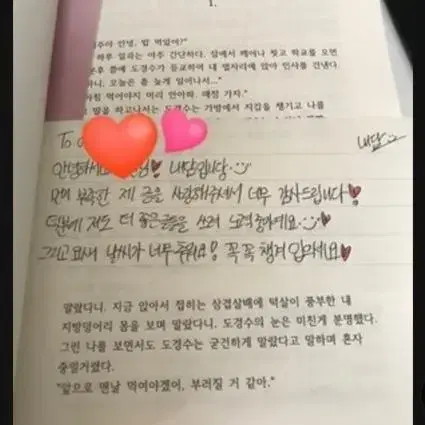 1.
안녕, 밥 먹었어?"
하루 일과는 아주 간단하다. 집에서 깨어나 씻고 학교를 오면
쯤에 도경수가 등교하여 내 옆자리에 앉아 인사를 건넨다.
오늘은 좀 늦게 일어나서..."
먹어야지 머리 안아파. 매점 가자."
말을 하고나서는 도경수는 가방에서 지갑을 챙기고 나를
To
내담
안녕하세요 내담입니당
부족한 제 글을 사랑해주셔서 너무 감사드립니다
덕분에 저도 더 좋은글들을 쓰려 노력중이에요
그리고 요새 날씨가 너무 추워요! 꼭꼭 챙겨 입으세요
말랐다니. 지금 앉아서 접히는 삼겹살배에 턱살이 풍부한 내
지방덩어리 몸을 보며 말랐다니. 도경수의 눈은 미친게 분명했다.
그런 나를 보면서도 도경수는 굳건하게 말랐다고 말하며 혼자
중얼거렸다.
"앞으로 맨날 먹여야겠어, 부러질 거 같아."